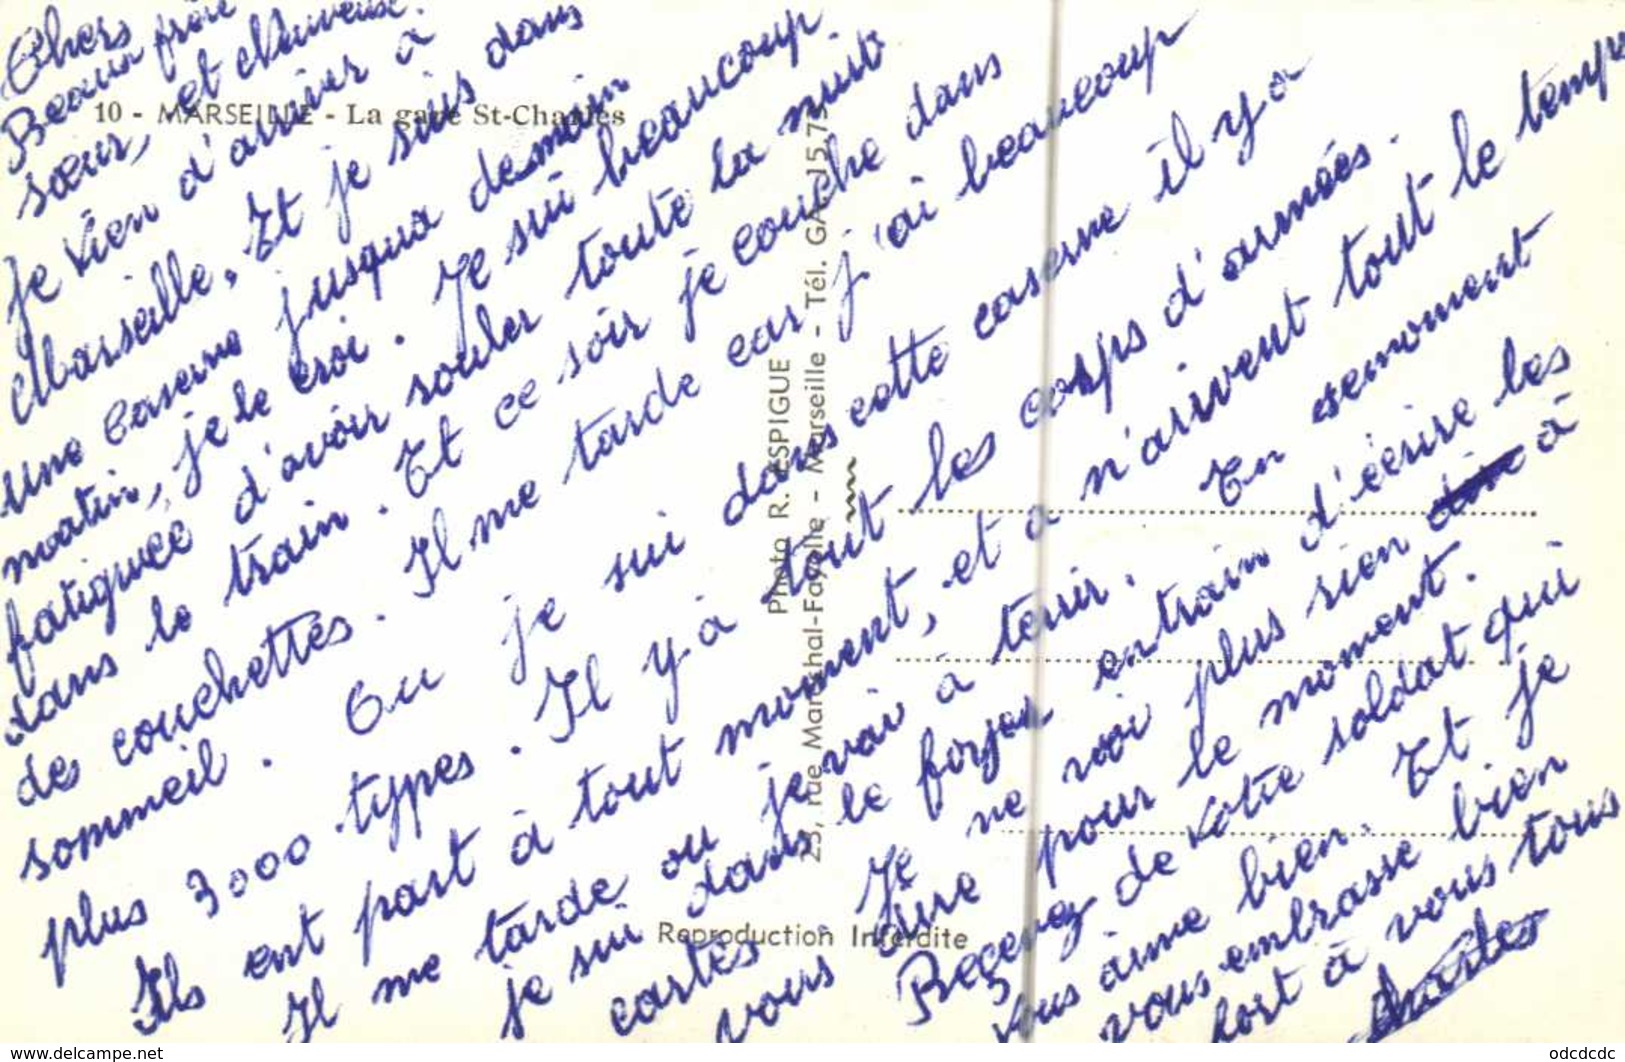 Chers
Beaux frère
sœur, et chuveuse.
Je vien d'arriver à
Marseille. Et je suis dans
une caserne jusqua demain
matin, je le croi. Je sui beaucoup
fatiguée d'avoir rouler toute la nuit
dans le train. Et ce soir je couche dans
des couchettes. Il me tarde car j'ai beaucoup
sommeil. Ou je sui dans cette caserne il y a
plus 3000 types. Il y à tout les corps d'armées.
Ils ent part à tout moment, et a n'arivent tout le temps
Il me tarde ou je vai à tenir. En semoment
je sui dans le foyer entrain d'écrire les
cartes. Je ne voi plus rien à
vous dire pour le moment.
Recevez de votre soldat qui
vous aime bien. Et je
vous embrasse bien
fort à vous tous
Charles
10 - MARSEILLE - La gare St-Charles
Photo R. ESPIGUE
25, rue Maréchal-Fayolle - Marseille - Tél. GA. 15.75
Reproduction Interdite
www.delcampe.net
odcdcdc